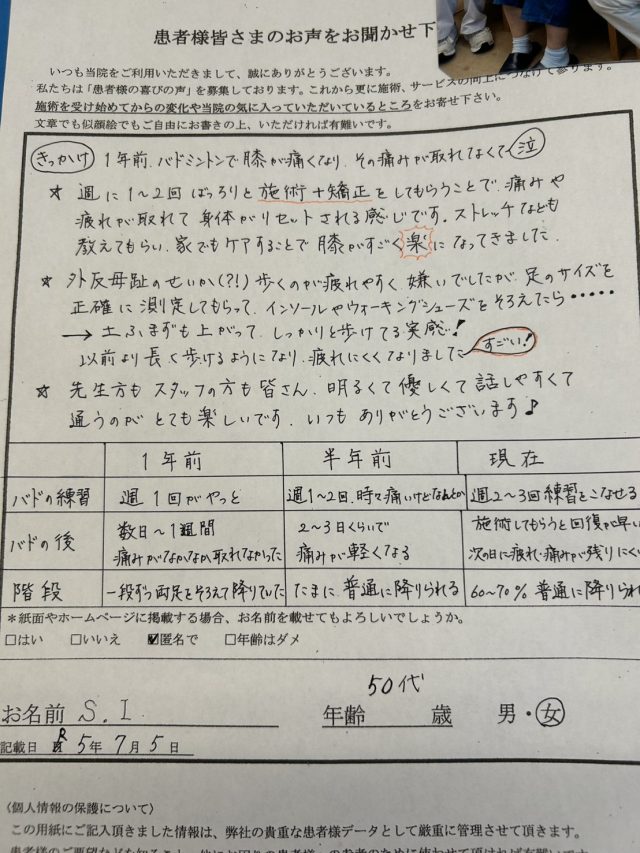 患者様皆さまのお声をお聞かせ下
いつも当院をご利用いただきまして、誠にありがとうございます。
私たちは「患者様の喜びの声」を募集しております。これから更に施術、サービスの向上につなげて参ります。
施術を受け始めてからの変化や当院の気に入っていただいているところをお寄せ下さい。
文章でも似顔絵でもご自由にお書きの上、いただければ有難いです。
きっかけ 1年前、バドミントンで膝が痛くなり、その痛みが取れなくて 泣
★ 週に1〜2回 ばっちりと施術+矯正をしてもらうことで、痛みや
疲れが取れて 身体がリセットされる感じです。ストレッチなども
教えてもらい、家でもケアすることで膝がすごく楽になってきました。
★ 外反母趾のせいか(?!) 歩くのが疲れやすく、嫌いでしたが、足のサイズを
正確に測定してもらって、インソールやウォーキングシューズをそろえたら・・・・・
→ 土ふまずも上がって、しっかりと歩けてる実感!
以前より長く歩けるようになり、疲れにくくなりました すごい!
★ 先生方もスタッフの方も皆さん、明るくて優しくて話しやすくて
通うのがとても楽しいです。いつもありがとうございます♪
1年前 半年前 現在
バドの練習 週1回がやっと 週1〜2回、時々痛いけどなんとか 週2〜3回練習をこなせる
バドの後 数日〜1週間 2〜3日くらいで 施術してもらうと回復が早い
痛みがなかなか取れなかった 痛みが軽くなる 次の日に疲れ・痛みが残りにくい
階段 一段ずつ両足をそろえて降りていた たまに、普通に降りられる 60〜70% 普通に降りられ
*紙面やホームページに掲載する場合、お名前を載せてもよろしいでしょうか。
□はい □いいえ ☑匿名で □年齢はダメ
お名前 S.I 年齢 50代 歳 男・女
記載日 R5年7月5日
〈個人情報の保護について〉
この用紙にご記入頂きました情報は、弊社の貴重な患者様データとして厳重に管理させて頂きます。